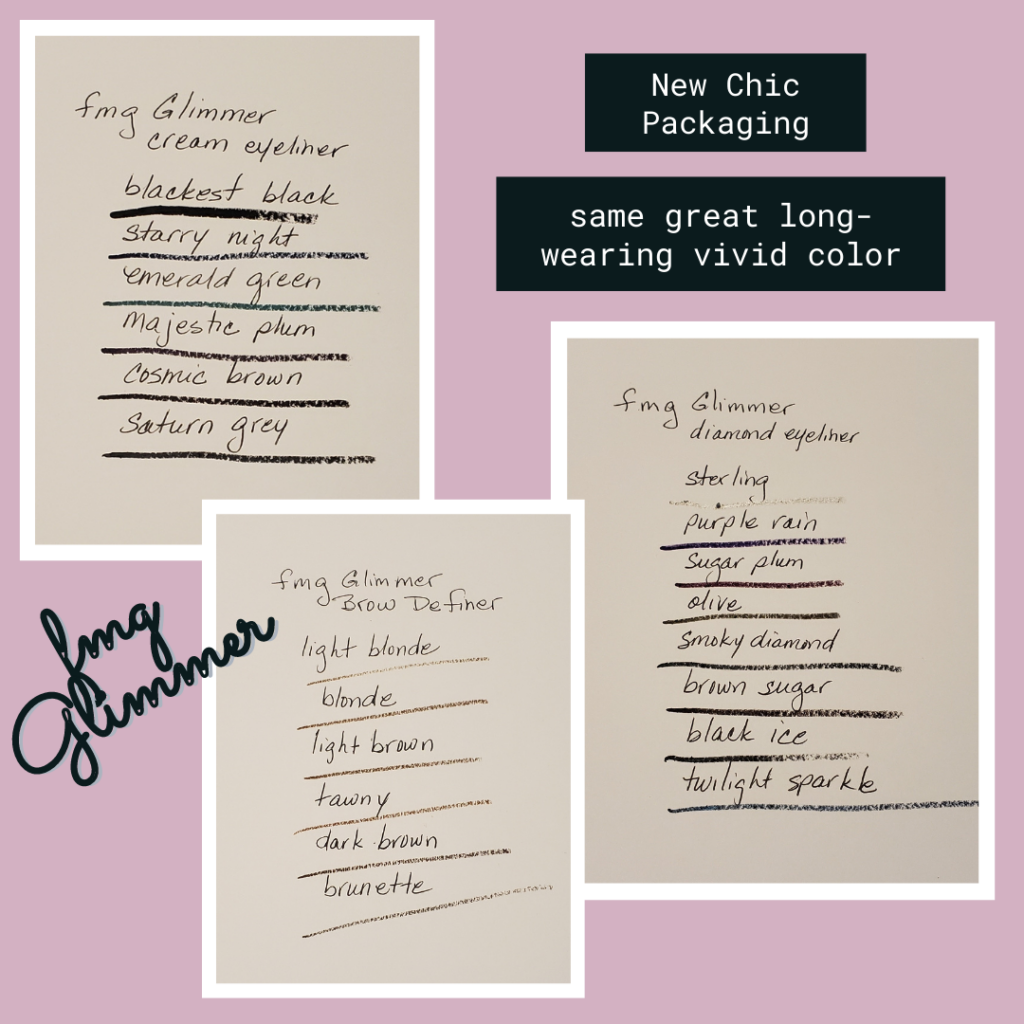 fmg Glimmer
cream eyeliner
blackest black
starry night
emerald green
majestic plum
cosmic brown
saturn grey
New Chic
Packaging
same great long-
wearing vivid color
fmg Glimmer
diamond eyeliner
sterling
purple rain
sugar plum
olive
smoky diamond
brown sugar
black ice
twilight sparkle
fmg Glimmer
Brow Definer
light blonde
blonde
light brown
tawny
dark brown
brunette
fmg
Glimmer